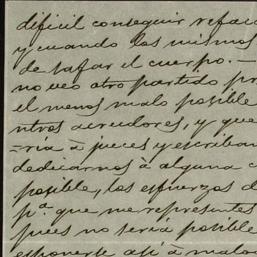 dificil conseguir refac
y cuando los mismos
de tafar el cuerpo. —
no veo otro partido pr
el menos malo posible
ntros acreedores, y que
=ria á jueces y escriban
dedicarnos á alguna c
posible, los esfuerzos d
pª. que me representes
pues no seria posible
esponerte asi á malo